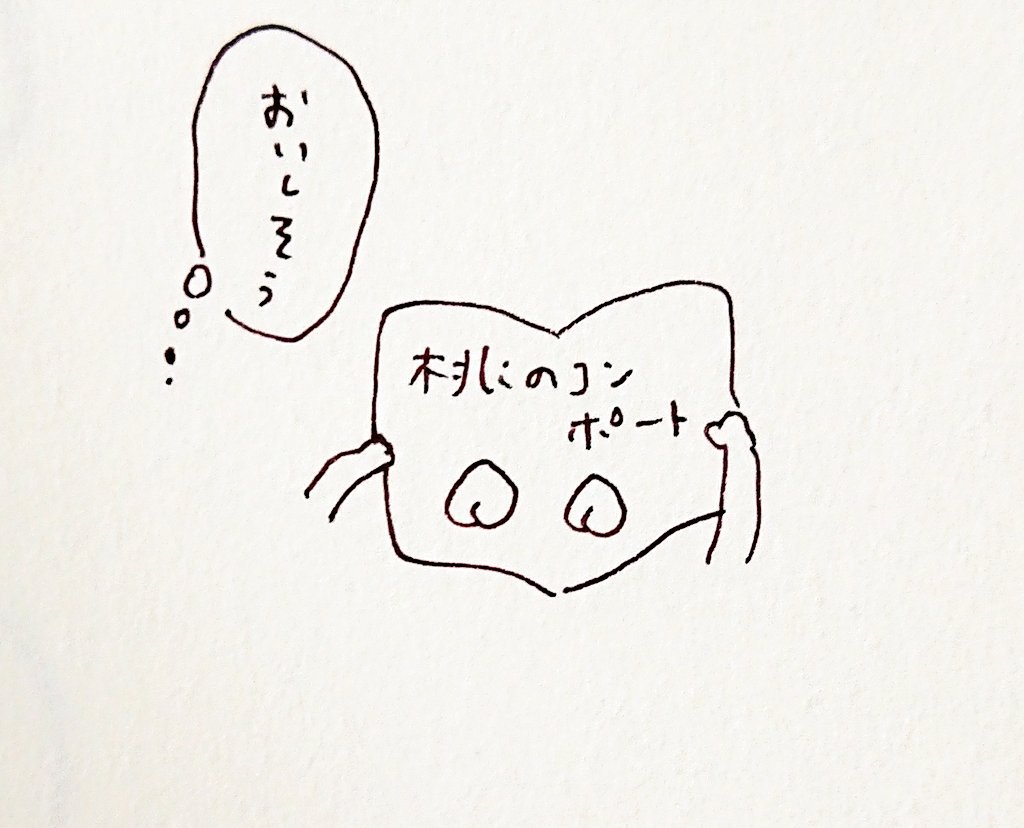 おいしそう
桃のコン
ポート